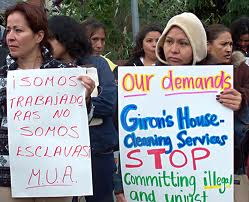 ¡SOMOS
TRABAJADO
RAS NO
SOMOS
ESCLAVAS!
M.U.A.
Our demands
Giron's House-
Cleaning Services
STOP
committing illegal
and unjust